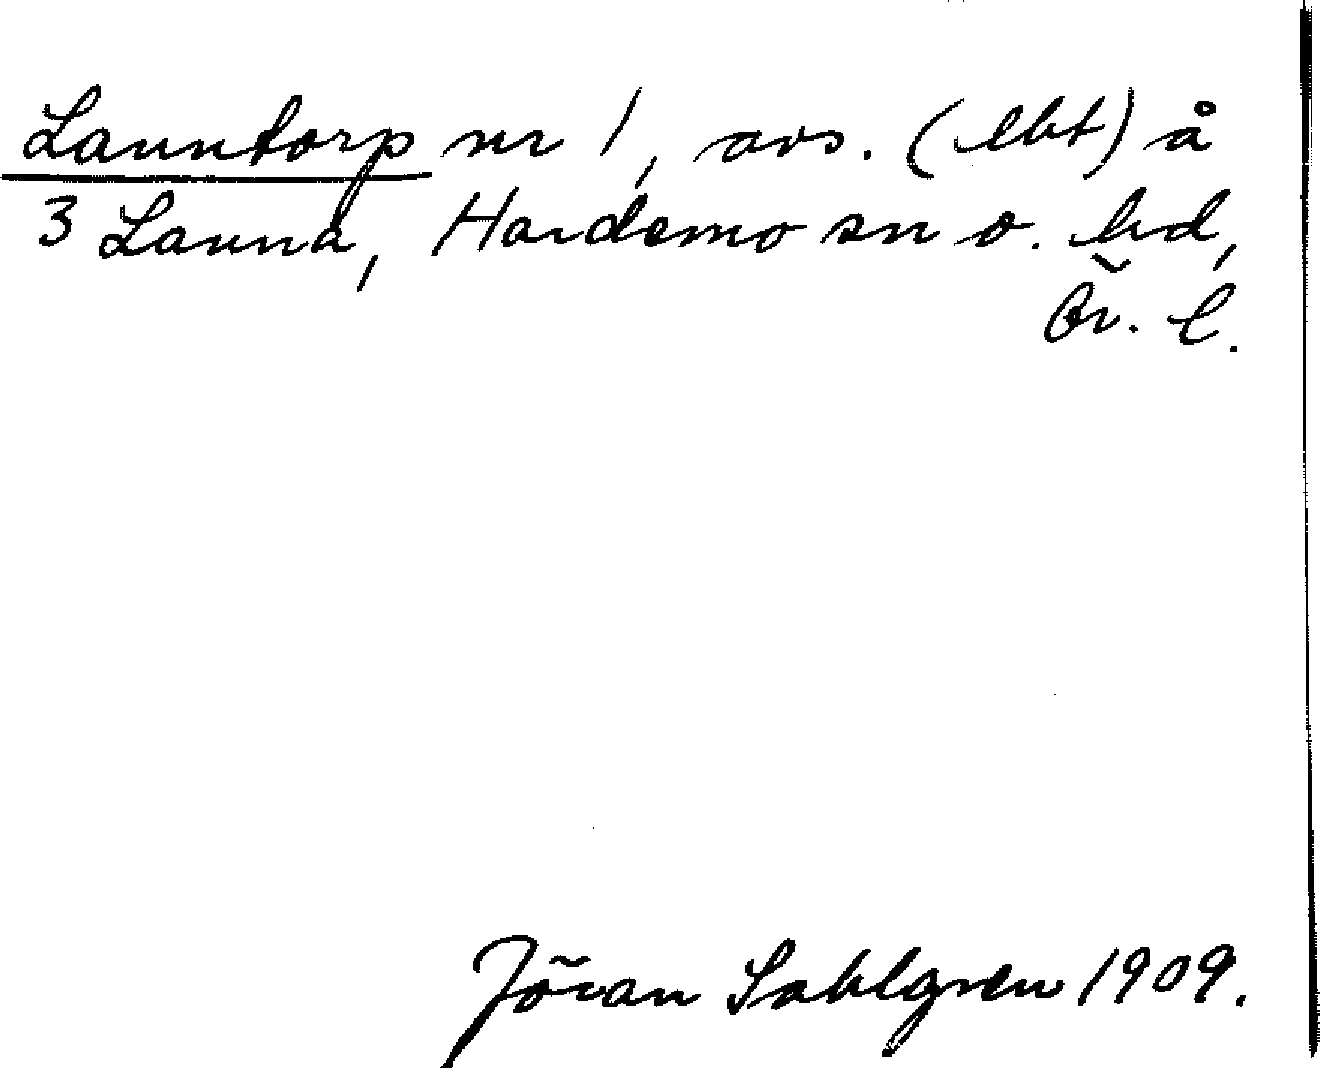 Launtorp nr 1, avs. (lht) å
3 Launa, Hardemo sn o. hd,
Ör. l.
Jöran Sahlgren 1909.